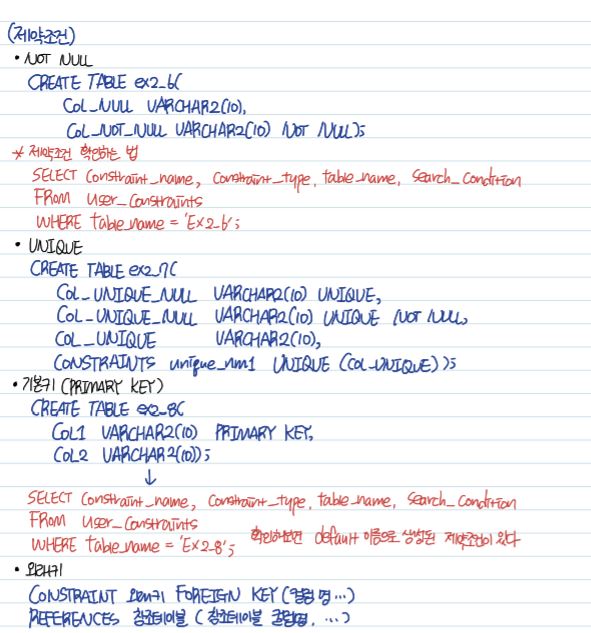 (제약조건)
• NOT NULL
CREATE TABLE ex2_6(
COL_NULL VARCHAR2(10),
COL_NOT_NULL VARCHAR2(10) NOT NULL);
* 제약조건 확인하는 법
SELECT Constraint_name, Constraint_type, table_name, Search_Condition
FROM User_Constraints
WHERE table_name = 'EX2_6';
• UNIQUE
CREATE TABLE ex2_7(
COL_UNIQUE_NULL VARCHAR2(10) UNIQUE,
COL_UNIQUE_NULL VARCHAR2(10) UNIQUE NOT NULL,
COL_UNIQUE VARCHAR2(10),
CONSTRAINTS unique_nm1 UNIQUE (COL_UNIQUE));
• 기본키 (PRIMARY KEY)
CREATE TABLE ex2_8(
COL1 VARCHAR2(10) PRIMARY KEY,
COL2 VARCHAR2(10));
↓
SELECT Constraint_name, Constraint_type, table_name, Search_Condition
FROM User_Constraints
WHERE table_name = 'EX2_8'; 확인해보면 default 이름으로 생성된 제약조건이 있다
• 외래키
CONSTRAINT 외래키 FOREIGN KEY (컬럼명...)
REFERENCES 참조테이블 (참조테이블 컬럼명, ...)